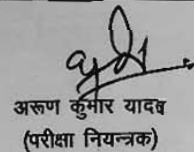 अरूण कुमार यादव
(परीक्षा नियन्त्रक)